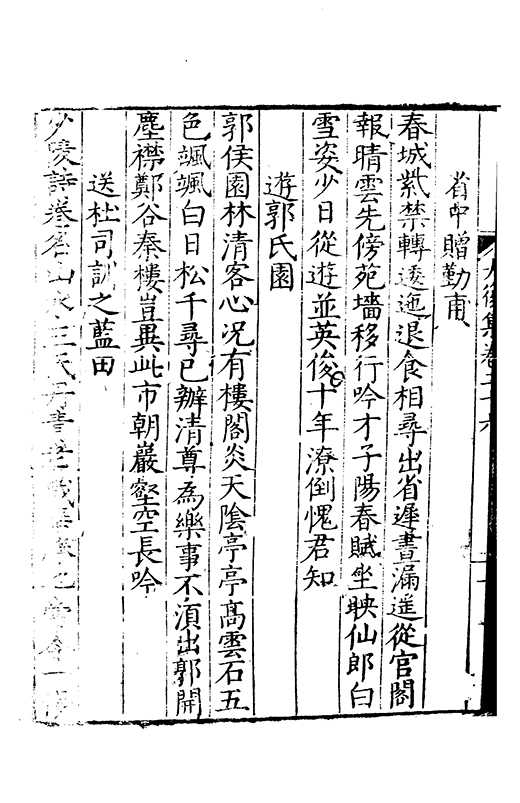 大復集卷二十六
省中贈勤甫
春城紫禁轉逶迤退食相尋出省遲晝漏遥從官閣
報晴雲先傍苑墻移行吟才子陽春賦坐映仙郎白
雪姿少日從遊並英俊十年潦倒愧君知
遊郭氏園
郭侯園林清客心况有樓閣炎天陰亭亭髙雲石五
色颯颯白日松千尋已辦清尊為樂事不湏出郭開
塵襟鄭谷秦樓豈異此市朝巖壑空長吟
送杜司訓之藍田
少陵詩卷名山